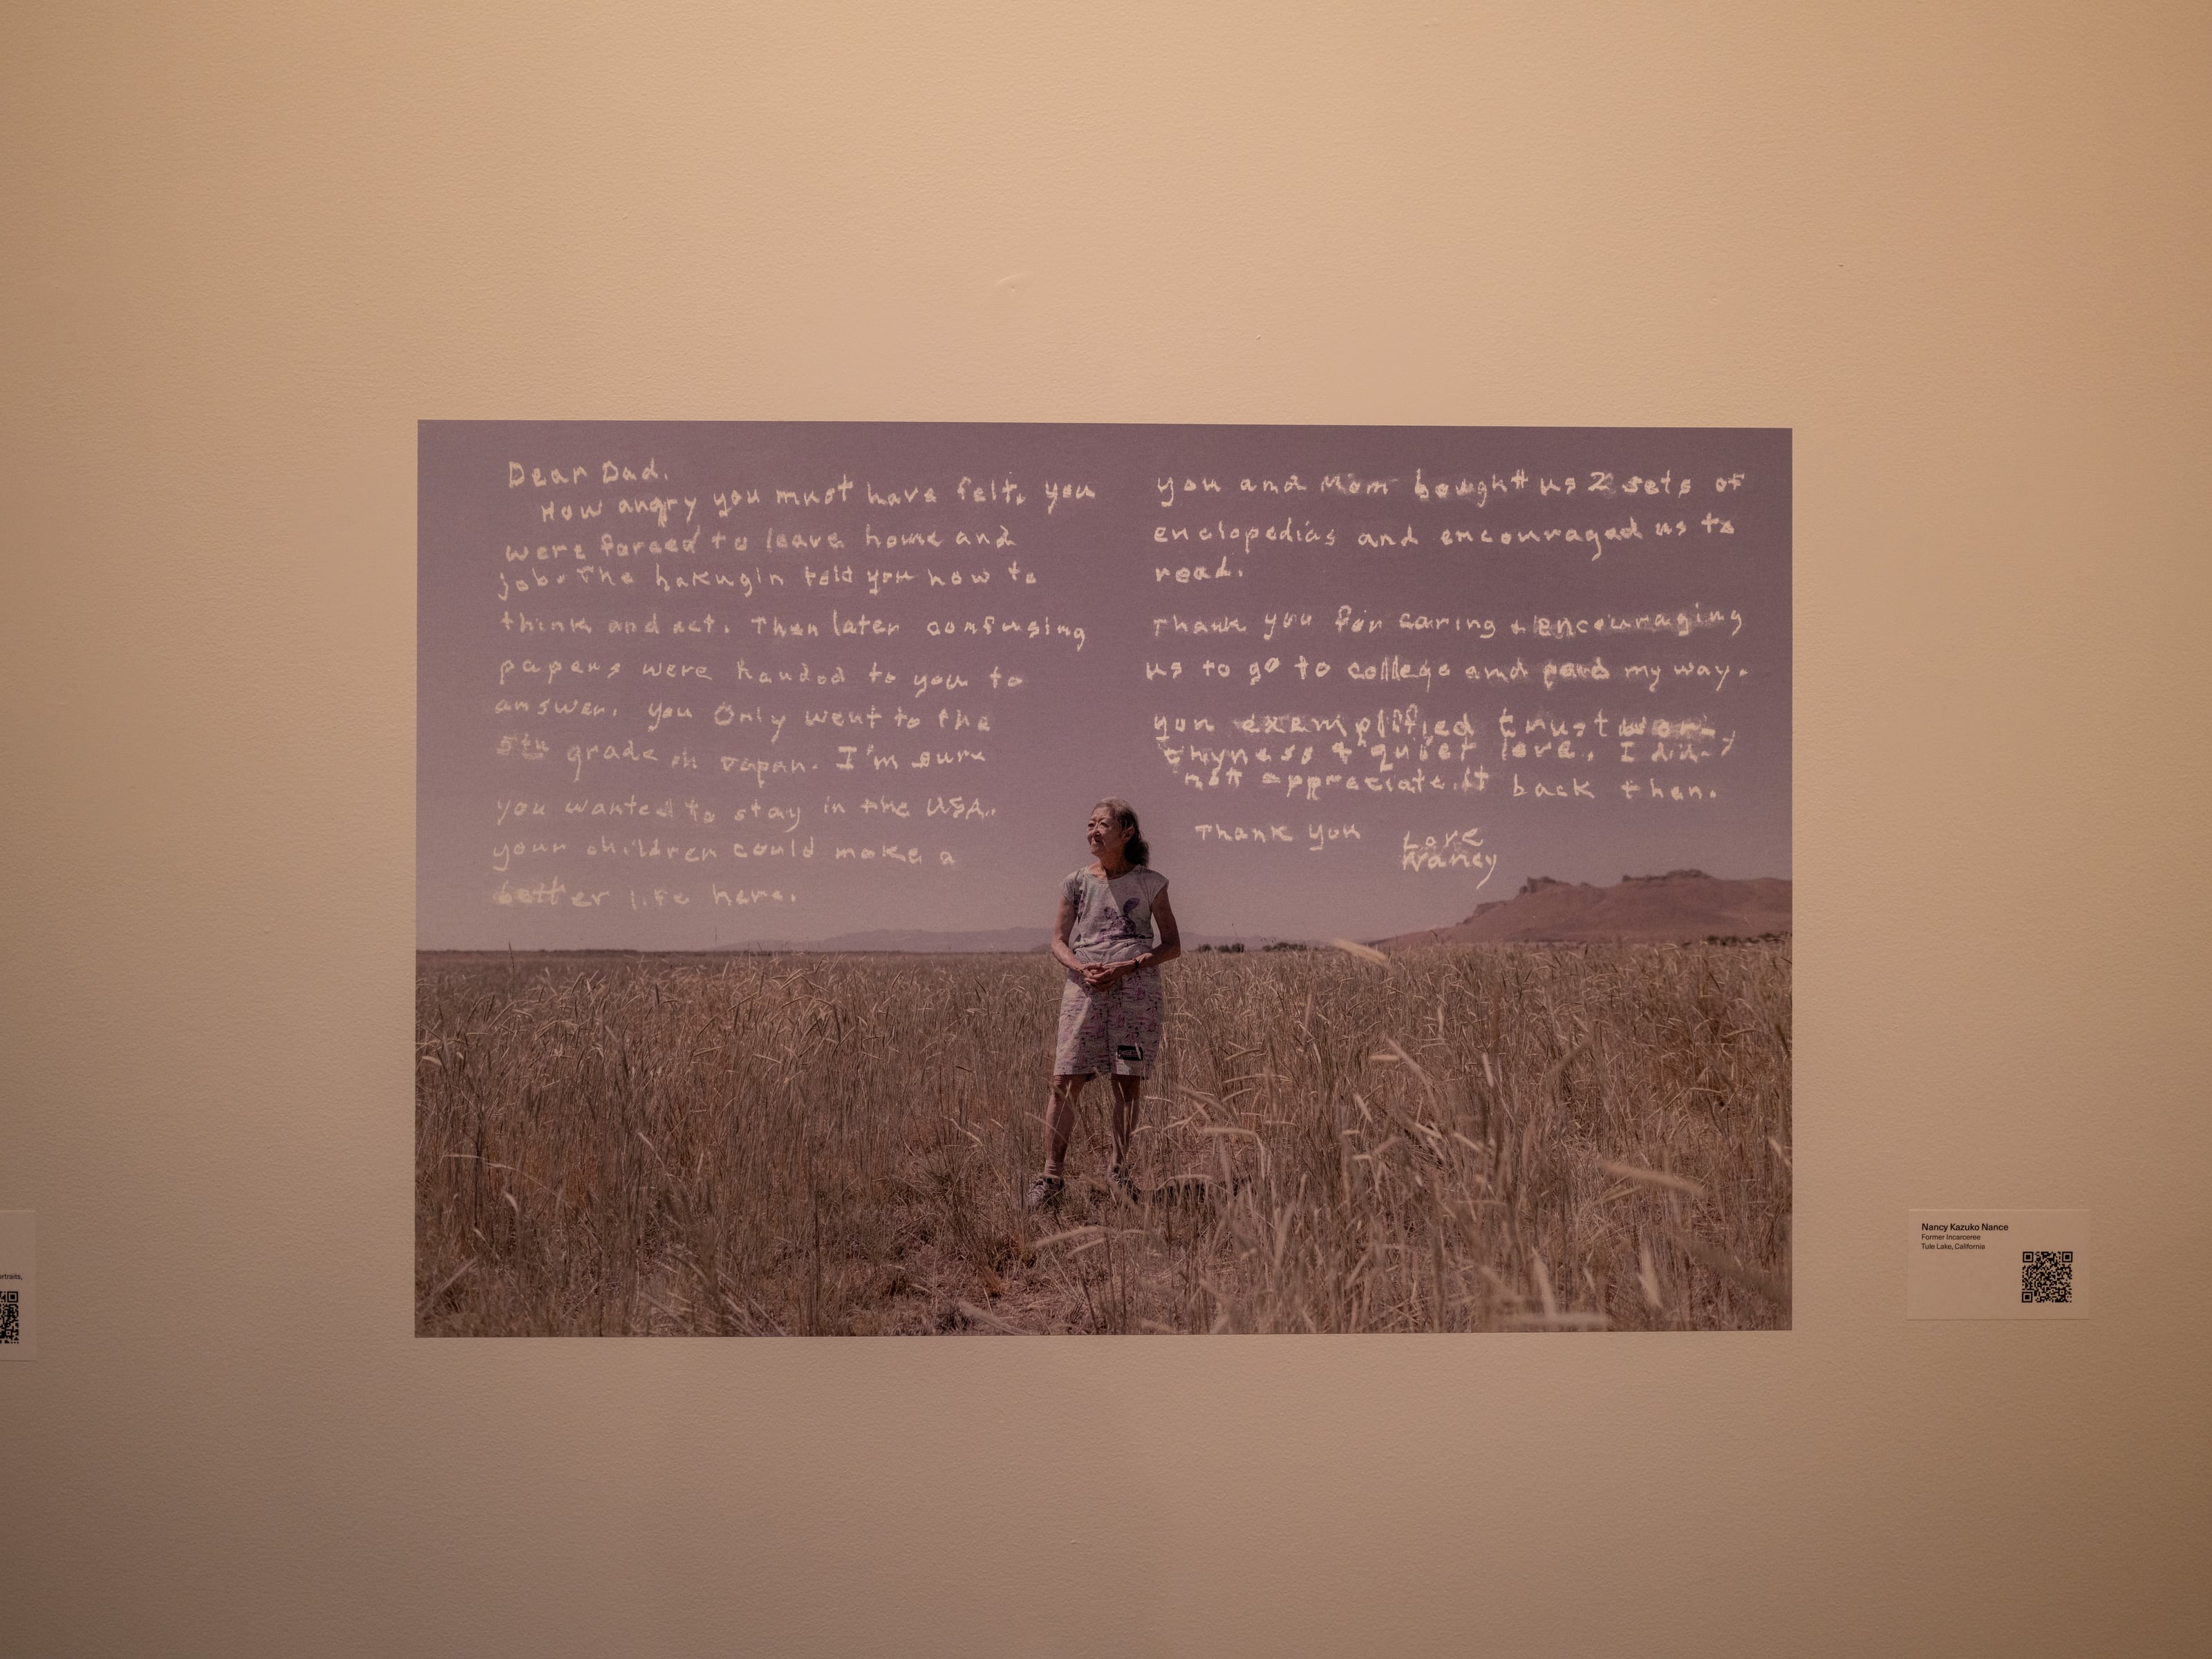 Dear Dad.
How angry you must have felt. you
were forced to leave home and
job. The hakugin told you how to
think and act. Then later confusing
papers were handed to you to
answer. you Only went to the
5th grade in Japan. I'm sure
you wanted to stay in the USA.
your children could make a
better life here.
you and Mom bought us 2 sets of
enclopedias and encouraged us to
read.
Thank you for caring + encouraging
us to go to college and paid my way.
you exemplified trustwor-
thyness + quiet love. I did
not appreciate it back then.
Thank you
Love
Nancy
Nancy Kazuko Nance
Former Incarceree
Tule Lake, California